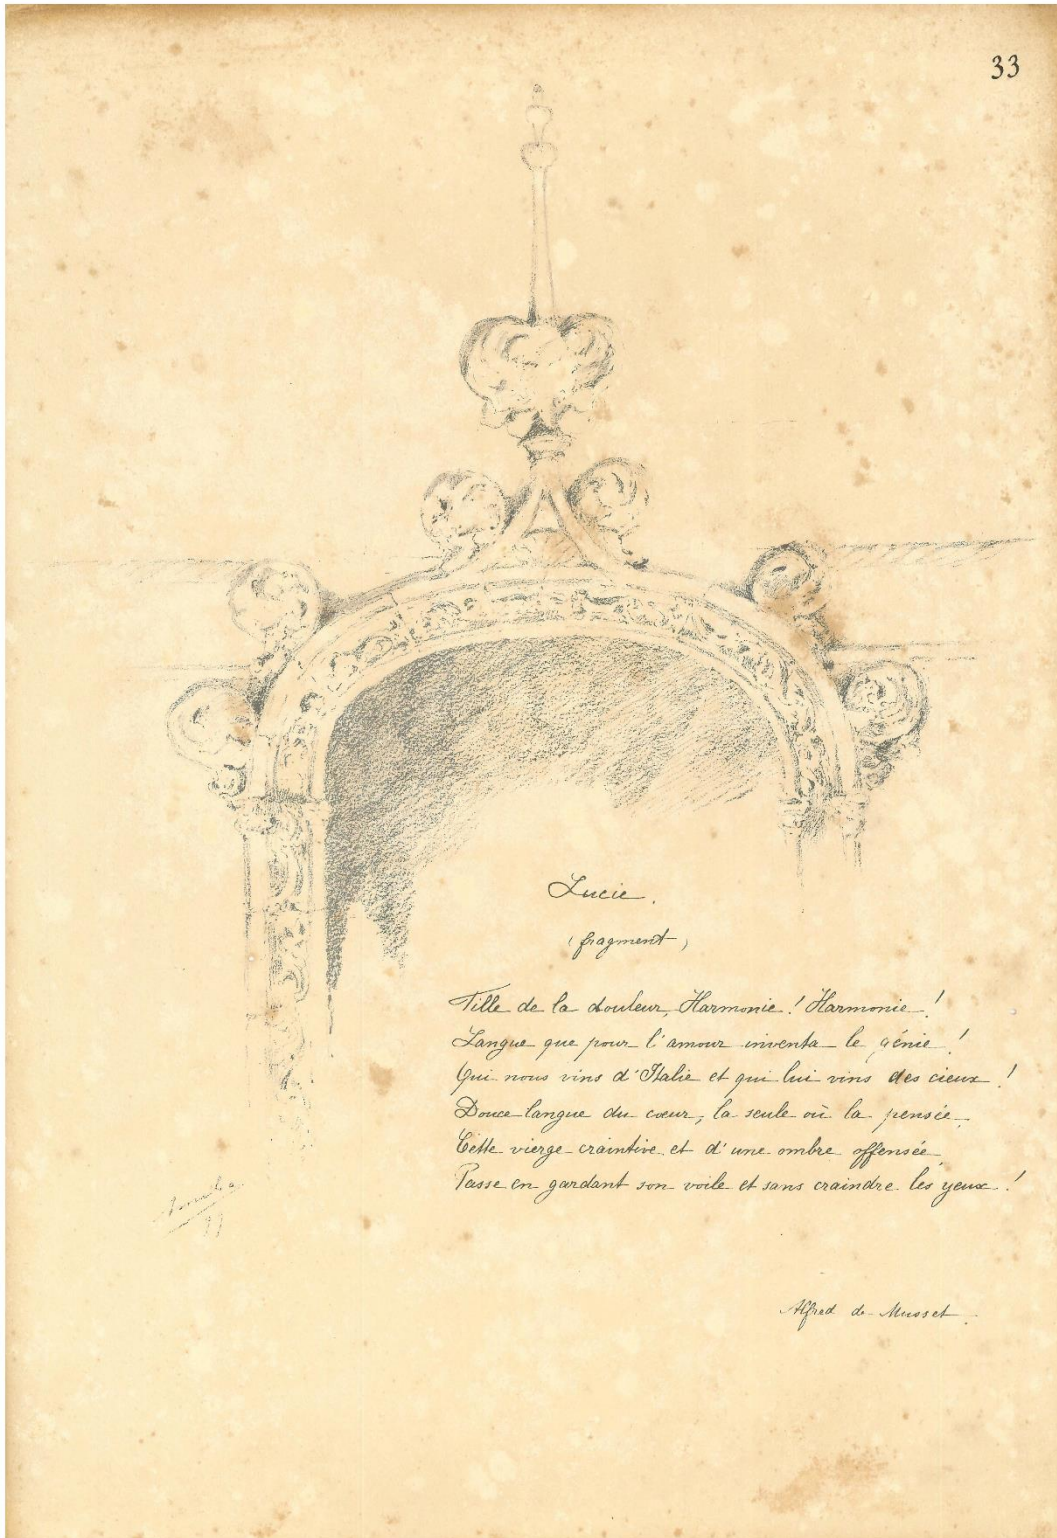 33
Lucie.
(fragment)
Fille de la douleur, Harmonie ! Harmonie !
Langue que pour l'amour inventa le génie !
Qui nous vins d'Italie et qui lui vins des cieux !
Douce langue du cœur, la seule où la pensée,
Cette vierge craintive et d'une ombre offensée,
Passe en gardant son voile et sans craindre les yeux !
Alfred de Musset.